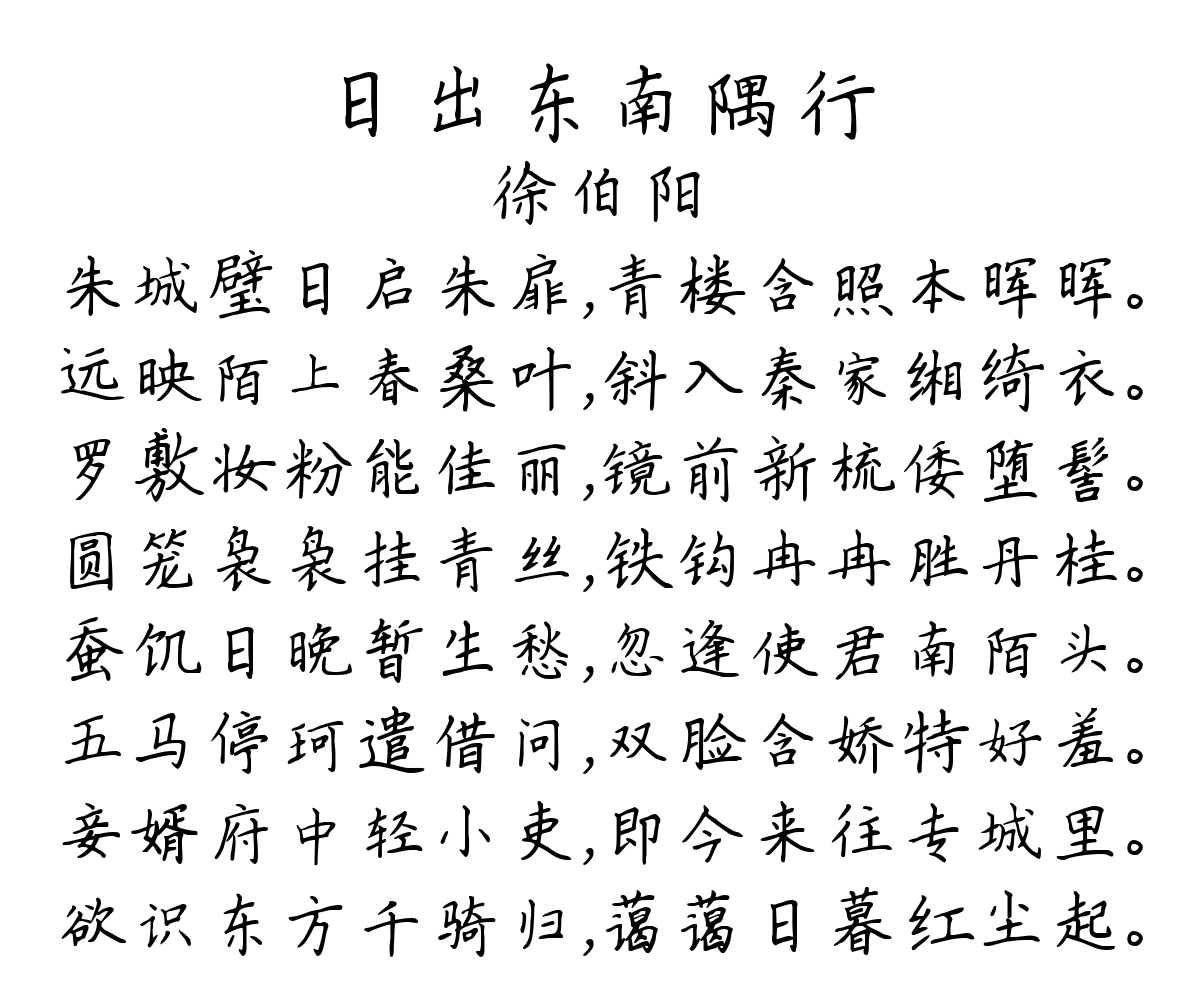 日出东南隅行
徐伯阳
朱城璧日启朱扉,青楼含照本晖晖。
远映陌上春桑叶,斜入秦家缃绮衣。
罗敷妆粉能佳丽,镜前新梳倭堕髻。
圆笼袅袅挂青丝,铁钩冉冉胜丹桂。
蚕饥日晚暂生愁,忽逢使君南陌头。
五马停珂遣借问,双脸含娇特好羞。
妾婿府中轻小吏,即今来往专城里。
欲识东方千骑归,蔼蔼日暮红尘起。